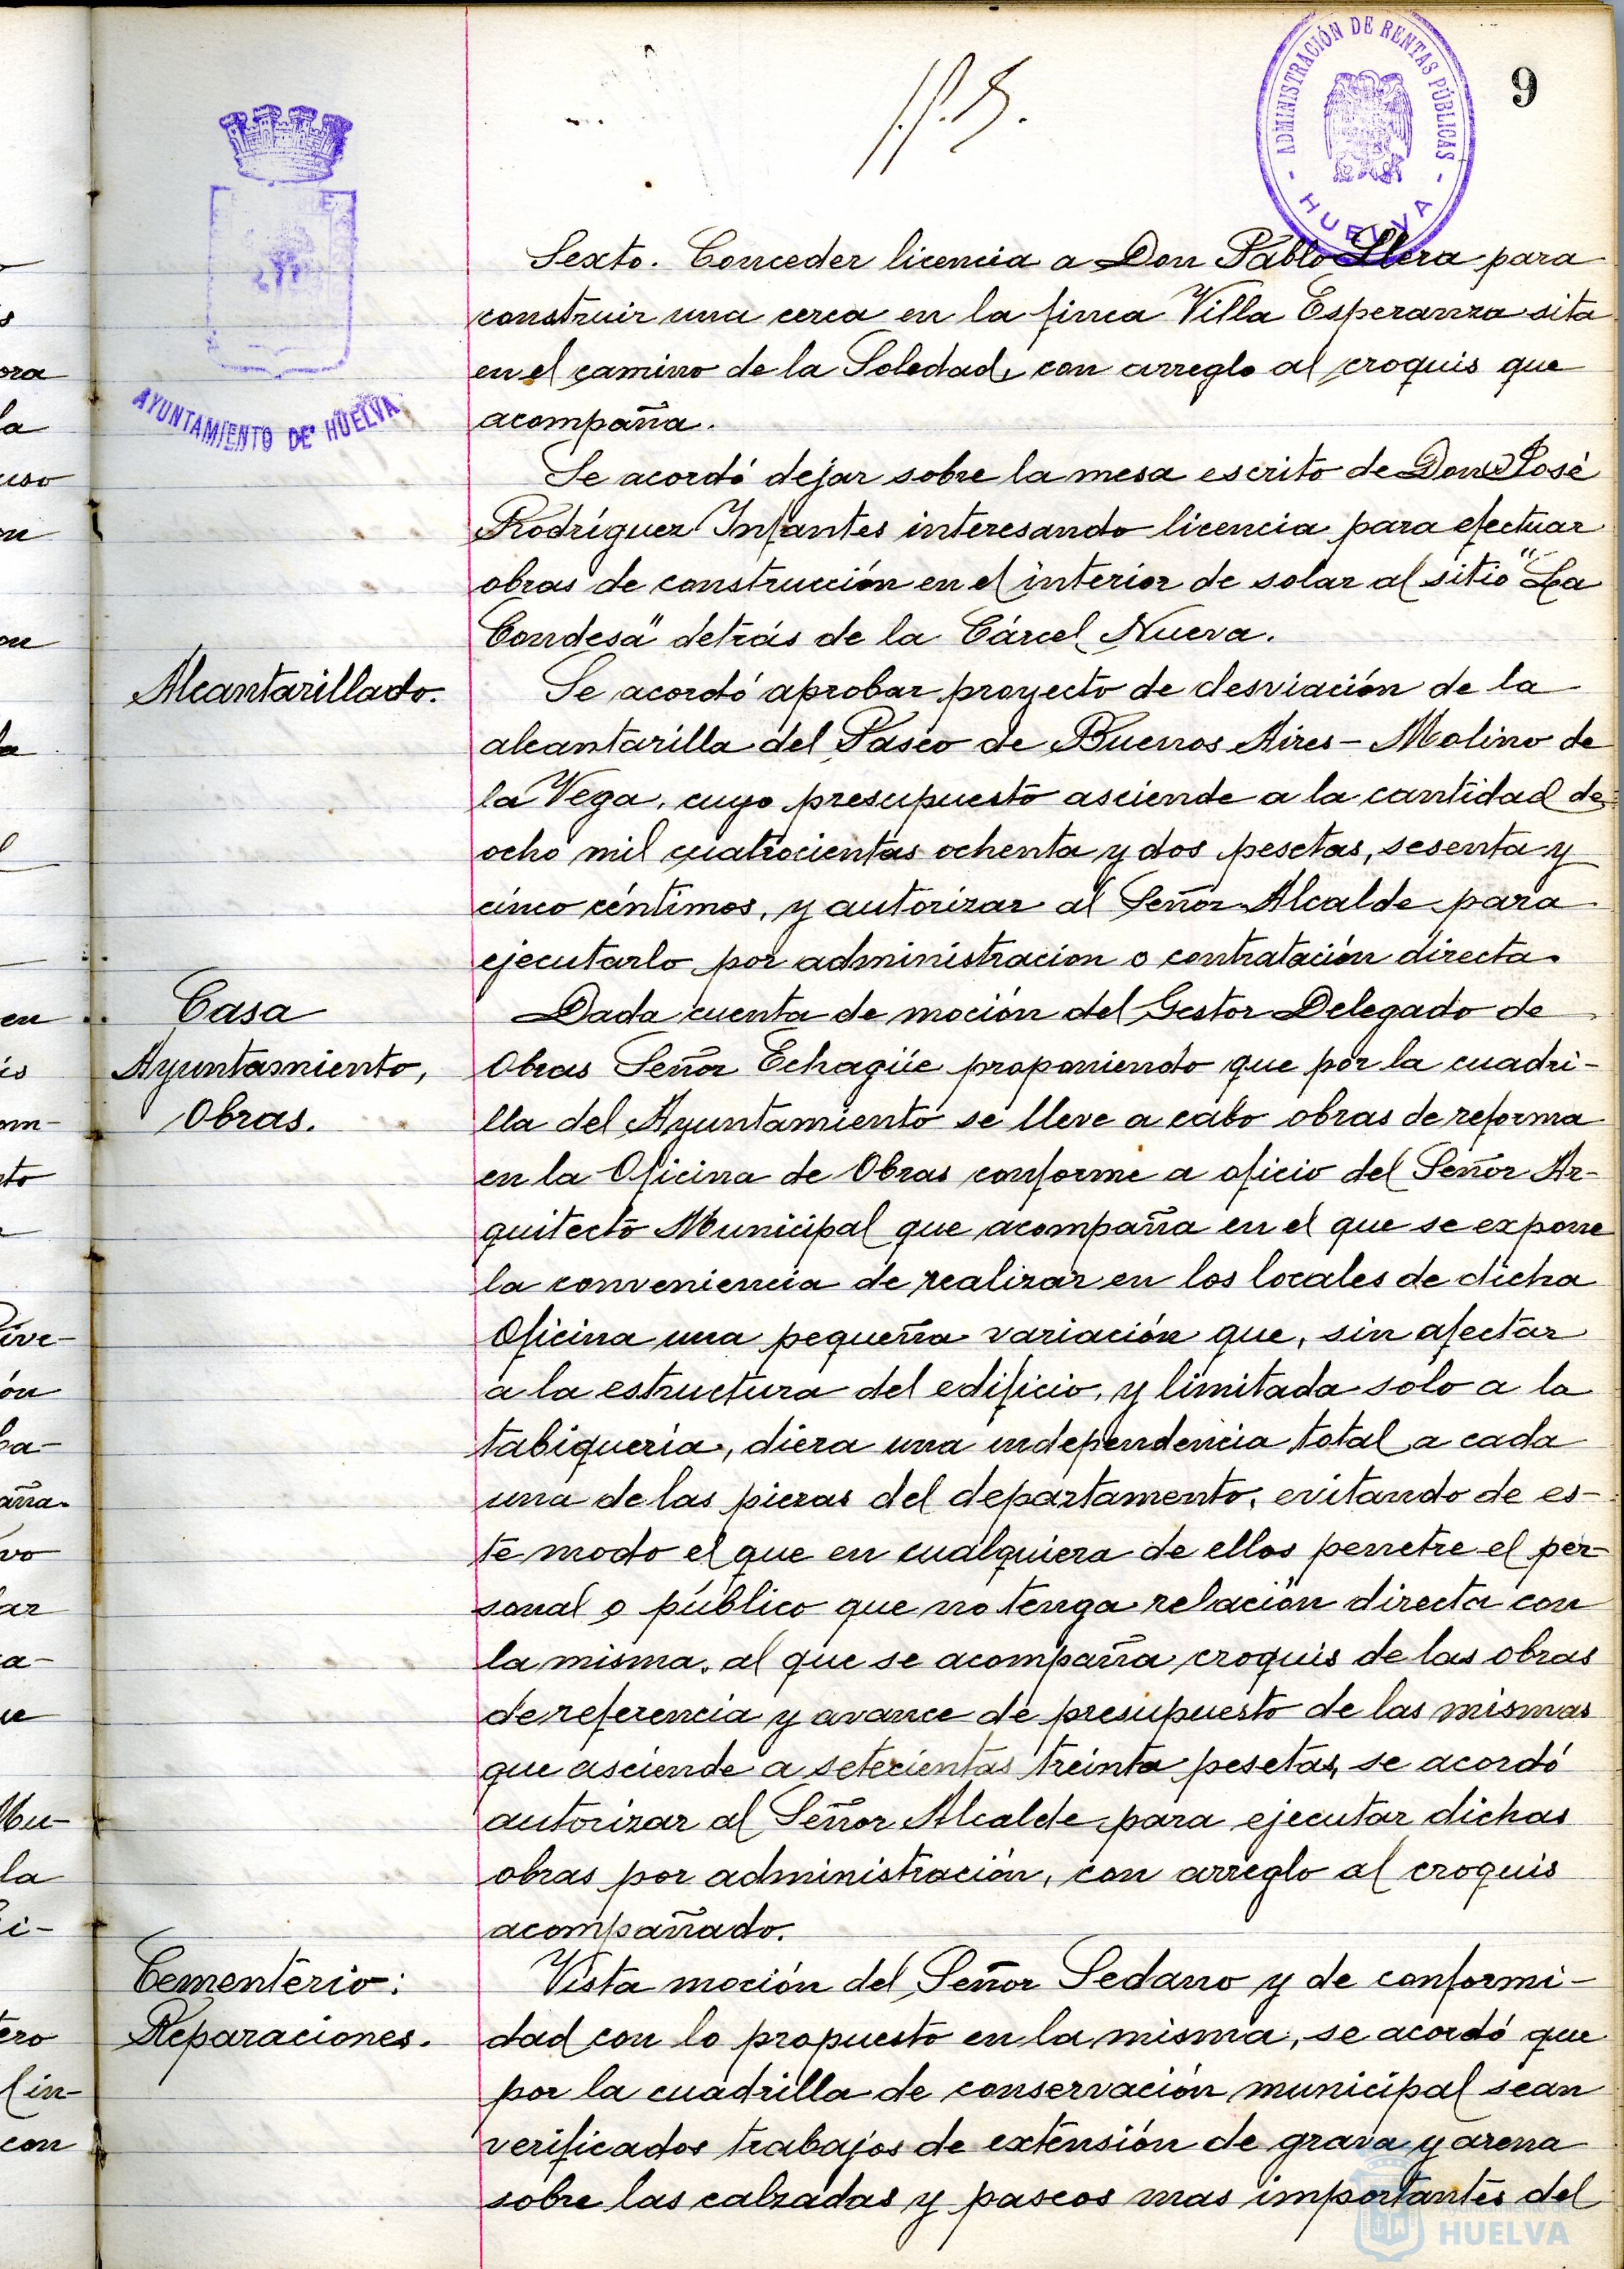 9
ADMINISTRACIÓN DE RENTAS PÚBLICAS
- HUELVA -
AYUNTAMIENTO DE HUELVA
Sexto. Conceder licencia a Don Pablo Llera para
construir una cerca en la finca Villa Esperanza sita
en el camino de la Soledad, con arreglo al croquis que
acompaña.
Se acordó dejar sobre la mesa escrito de Don José
Rodríguez Infantes interesando licencia para efectuar
obras de construcción en el interior de solar al sitio "La
Condesa" detrás de la Cárcel Nueva.
Alcantarillado.
Se acordó aprobar proyecto de desviación de la
alcantarilla del Paseo de Buenos Aires - Molino de
la Vega, cuyo presupuesto asciende a la cantidad de
ocho mil cuatrocientas ochenta y dos pesetas, sesenta y
cinco céntimos, y autorizar al Señor Alcalde para
ejecutarlo por administracion o contratación directa.
Casa
Ayuntamiento,
Obras.
Dada cuenta de moción del Gestor Delegado de
Obras Señor Echagüe proponiendo que por la cuadri-
lla del Ayuntamiento se lleve a cabo obras de reforma
en la Oficina de Obras conforme a oficio del Señor Ar-
quitecto Municipal que acompaña en el que se expone
la conveniencia de realizar en los locales de dicha
Oficina una pequeña variación que, sin afectar
a la estructura del edificio, y limitada solo a la
tabiquería, diera una independencia total a cada
una de las piezas del departamento, evitando de es-
te modo el que en cualquiera de ellos penetre el per-
sonal o público que no tenga relación directa con
la misma, al que se acompaña croquis de las obras
de referencia y avance de presupuesto de las mismas
que asciende a setecientas treinta pesetas, se acordó
autorizar al Señor Alcalde para ejecutar dichas
obras por administración, con arreglo al croquis
acompañado.
Cementerio:
Reparaciones.
Vista moción del Señor Sedano y de conformi-
dad con lo propuesto en la misma, se acordó que
por la cuadrilla de conservación municipal sean
verificados trabajos de extensión de grava y arena
sobre las calzadas y paseos mas importantes del
HUELVA